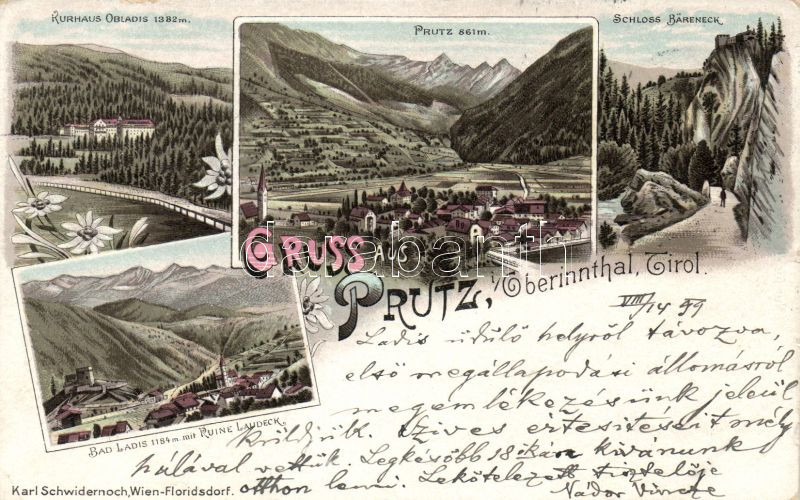 KURHAUS OBLADIS 1382m.
PRUTZ 861m.
SCHLOSS BÄRENECK.
darabanth
GRUSS AUS
PRUTZ, i/Oberinnthal, Tirol.
VIII/14 99
Ladis üdülő helyről távozva,
első megállapodási állomásról
megemlékezésünk jeleül
BAD LADIS 1184m. mit RUINE LAUDECK.
küldjük. Szives értesitéseit mély
hálával vettük. Legkésőbb 18.kára kivánunk
otthon lenni. Lekötelezett tisztelője
Karl Schwidernoch, Wien-Floridsdorf.
Nádor Vincze